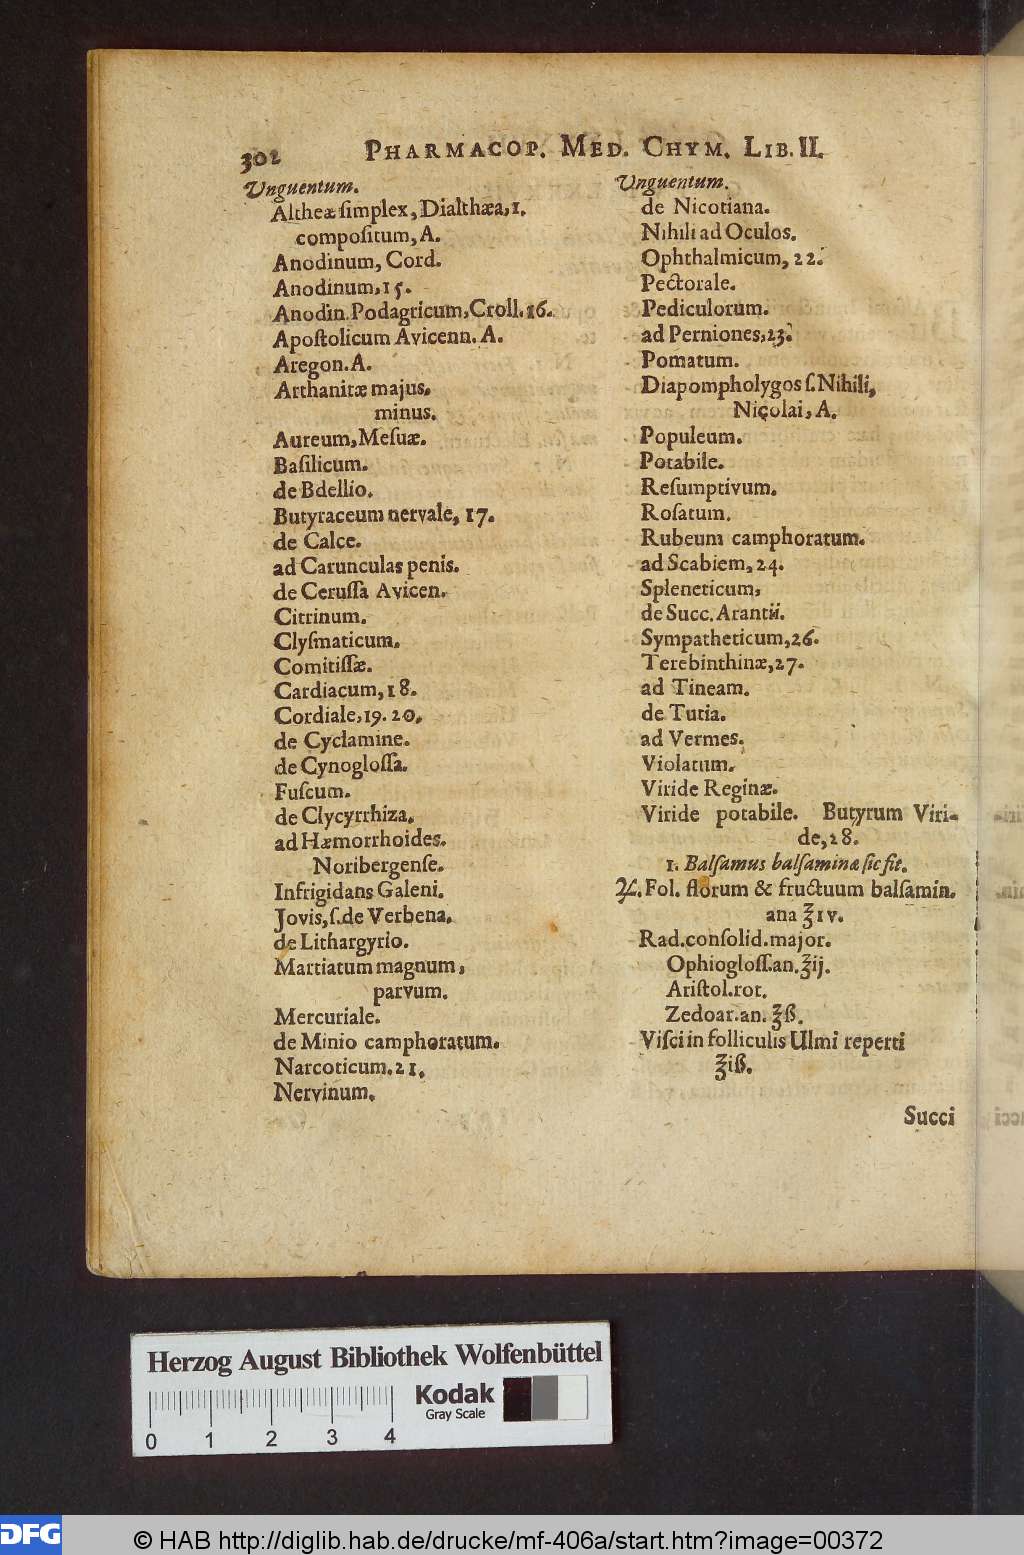 302 PHARMACOP. MED. CHYM. LIB. II.
Unguentum.
Altheæ ſimplex, Dialthæa, 1.
compoſitum, A.
Anodinum, Cord.
Anodinum, 15.
Anodin. Podagricum, Croll. 16.
Apoſtolicum Avicenn. A.
Aregon. A.
Arthanitæ majus,
minus.
Aureum, Meſuæ.
Baſilicum.
de Bdellio.
Butyraceum nervale, 17.
de Calce.
ad Carunculas penis.
de Ceruſſa Avicen.
Citrinum.
Clyſmaticum.
Comitiſſæ.
Cardiacum, 18.
Cordiale, 19. 20.
de Cyclamine.
de Cynogloſſa.
Fuſcum.
de Clycyrrhiza.
ad Hæmorrhoides.
Noribergenſe.
Infrigidans Galeni.
Jovis, ſ. de Verbena.
de Lithargyrio.
Martiatum magnum,
parvum.
Mercuriale.
de Minio camphoratum.
Narcoticum. 21.
Nervinum.
Unguentum.
de Nicotiana.
Nihili ad Oculos.
Ophthalmicum, 22.
Pectorale.
Pediculorum.
ad Perniones, 23.
Pomatum.
Diapompholygos ſ. Nihili,
Niçolai, A.
Populeum.
Potabile.
Reſumptivum.
Roſatum.
Rubeum camphoratum.
ad Scabiem, 24.
Spleneticum,
de Succ. Arantii.
Sympatheticum, 26.
Terebinthinæ, 27.
ad Tineam.
de Tutia.
ad Vermes.
Violatum.
Viride Reginæ.
Viride potabile. Butyrum Viri-
de, 28.
1. Balſamus balſaminæ ſic fit.
♃. Fol. florum & fructuum balſamin.
ana ℥ıv.
Rad. conſolid. major.
Ophiogloſſ. an. ℥ij.
Ariſtol. rot.
Zedoar. an. ℥ß.
Viſci in folliculis Ulmi reperti
℥iß.
Succi
Herzog August Bibliothek Wolfenbüttel
Kodak
Gray Scale
0 1 2 3 4
DFG
© HAB http://diglib.hab.de/drucke/mf-406a/start.htm?image=00372